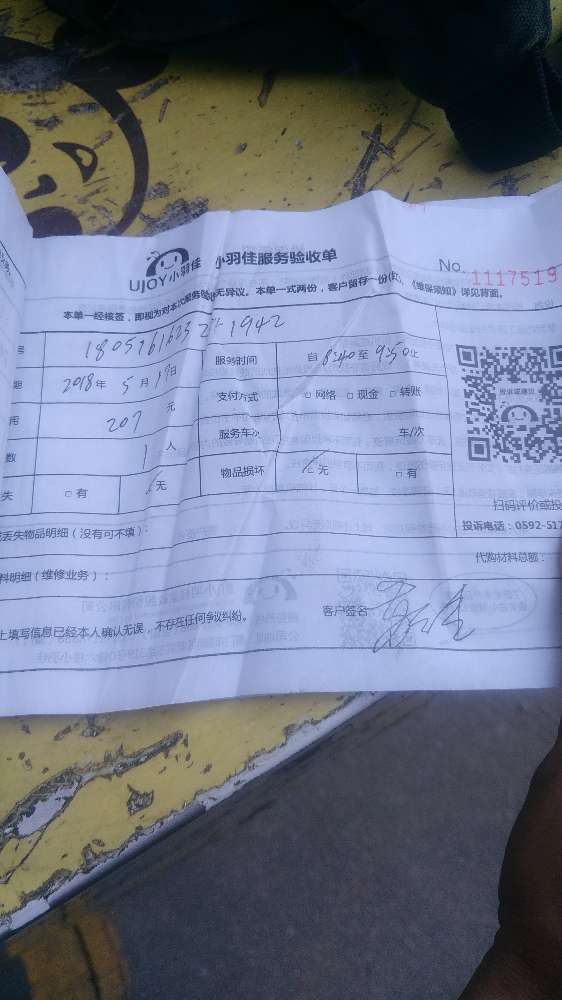 UJOY小羽佳 小羽佳服务验收单
No. 1117519
本单一经接签,即视为对本次服务验收无异议。本单一式两份,客户留存一份(红),《维保须知》详见背面。
号 1942
期 2018年 5月19日 服务时间 自 8:40 至 9:50 止
用 207 元 支付方式 □网络 □现金 □转账
投诉或建议
数 1 人 服务车次 车/次
失 □有 无 物品损坏 无 □有
扫码评价或投
投诉电话:0592-517
丢失物品明细(没有可不填):
代购材料总额:
料明细(维修业务):
上填写信息已经本人确认无误,不存在任何争议纠纷。 客户签名: